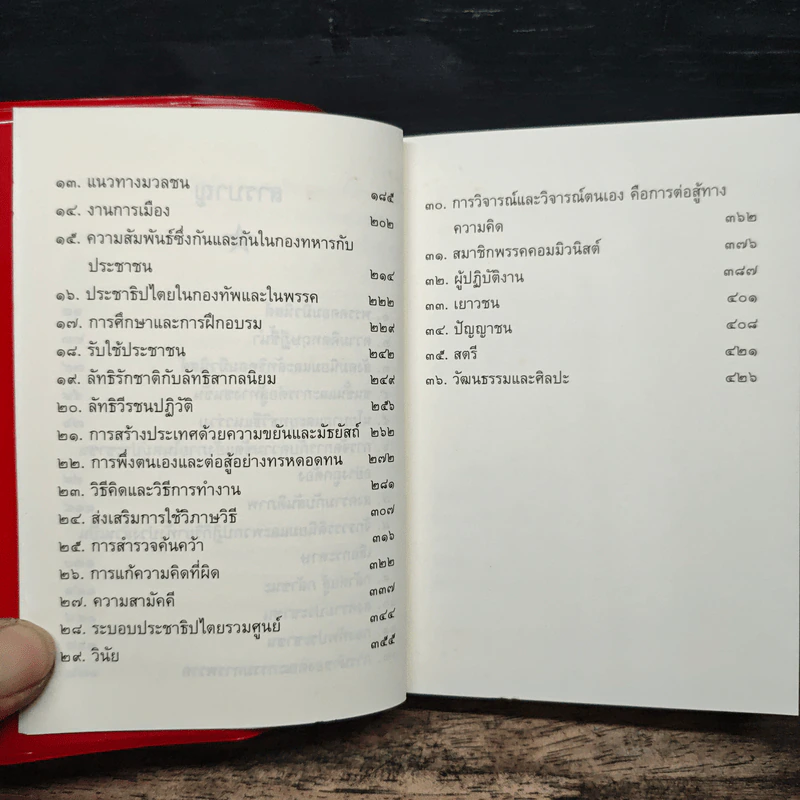 ๑๓. แนวทางมวลชน ๑๘๕
๑๔. งานการเมือง ๒๐๒
๑๕. ความสัมพันธ์ซึ่งกันและกันในกองทหารกับ
ประชาชน ๒๑๔
๑๖. ประชาธิปไตยในกองทัพและในพรรค ๒๒๒
๑๗. การศึกษาและการฝึกอบรม ๒๒๙
๑๘. รับใช้ประชาชน ๒๔๒
๑๙. ลัทธิรักชาติกับลัทธิสากลนิยม ๒๔๙
๒๐. ลัทธิวีรชนปฏิวัติ ๒๕๖
๒๑. การสร้างประเทศด้วยความขยันและมัธยัสถ์ ๒๖๒
๒๒. การพึ่งตนเองและต่อสู้อย่างทรหดอดทน ๒๗๒
๒๓. วิธีคิดและวิธีการทำงาน ๒๘๑
๒๔. ส่งเสริมการใช้วิภาษวิธี ๓๐๗
๒๕. การสำรวจค้นคว้า ๓๑๖
๒๖. การแก้ความคิดที่ผิด ๓๒๒
๒๗. ความสามัคคี ๓๓๗
๒๘. ระบอบประชาธิปไตยรวมศูนย์ ๓๔๔
๒๙. วินัย ๓๕๕
๓๐. การวิจารณ์และวิจารณ์ตนเอง คือการต่อสู้ทาง
ความคิด ๓๖๒
๓๑. สมาชิกพรรคคอมมิวนิสต์ ๓๗๖
๓๒. ผู้ปฏิบัติงาน ๓๘๗
๓๓. เยาวชน ๔๐๑
๓๔. ปัญญาชน ๔๐๘
๓๕. สตรี ๔๒๑
๓๖. วัฒนธรรมและศิลปะ ๔๒๖